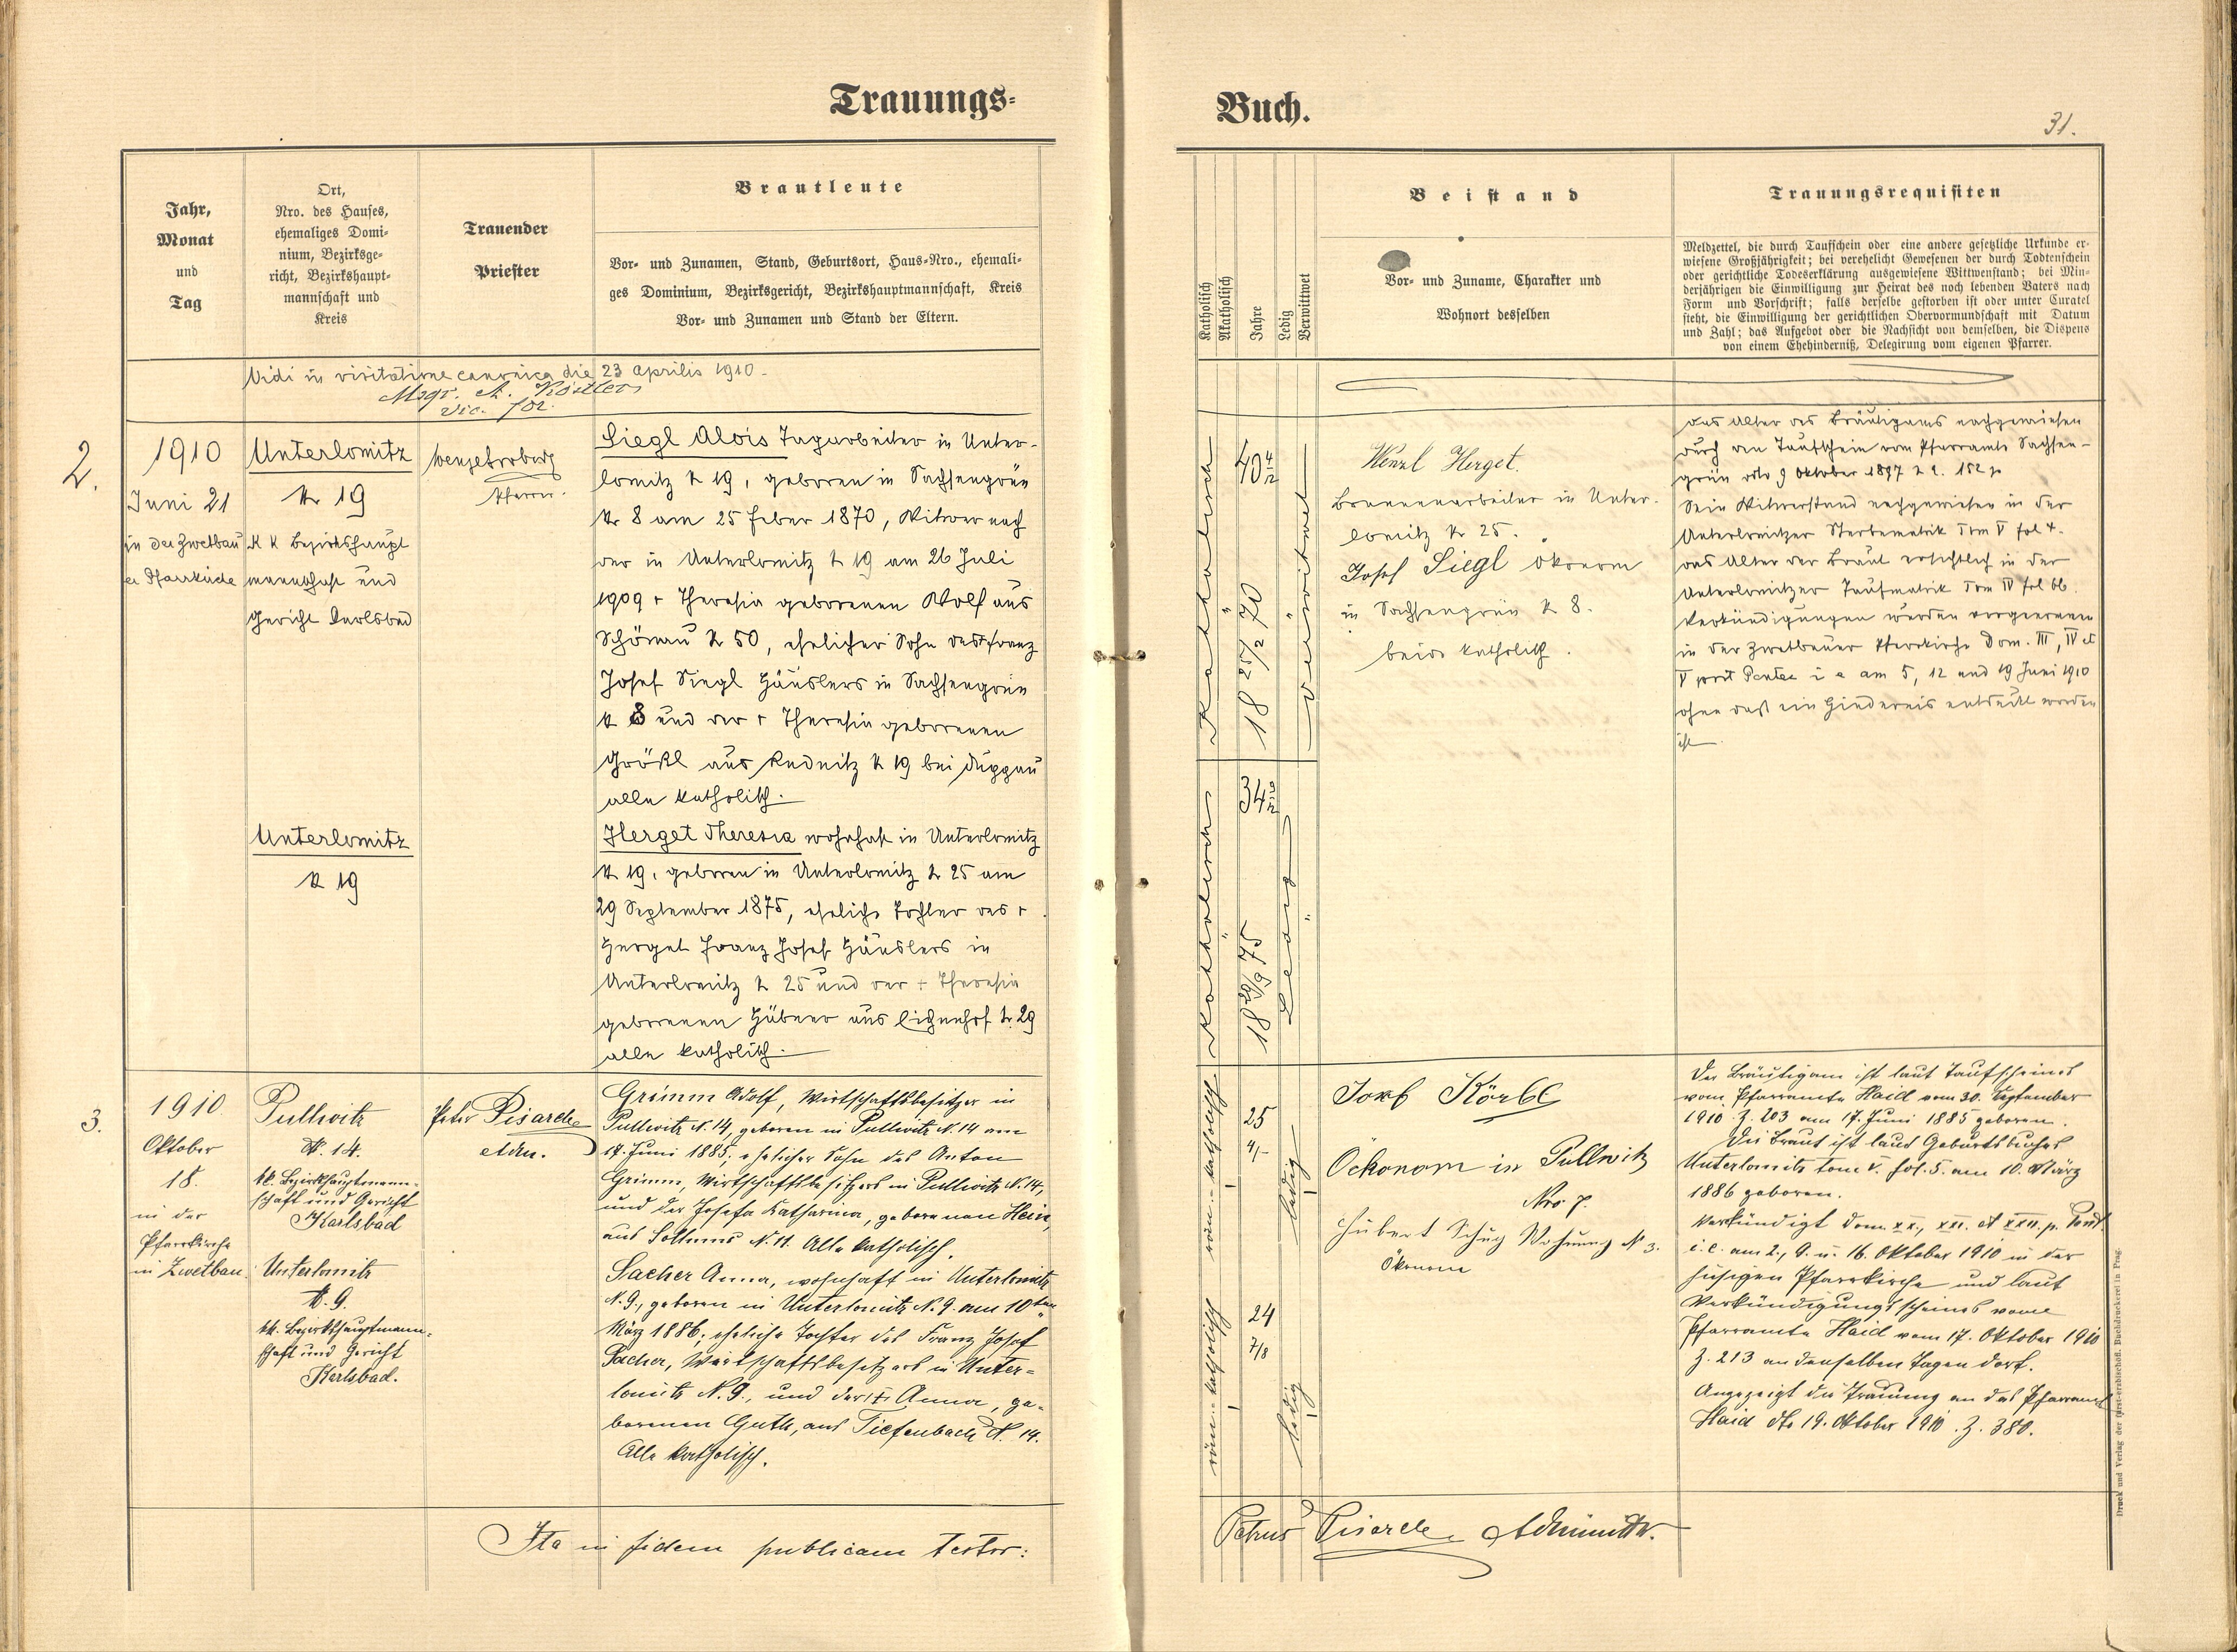 Trauungs-
Buch.
31.
Jahr,
Monat
und
Tag
Ort,
Nro. des Hauses,
ehemaliges Domi-
nium, Bezirksge-
richt, Bezirkshaupt-
mannschaft und
Kreis
Trauender
Priester
Brautleute
Vor- und Zunamen, Stand, Geburtsort, Haus-Nro., ehemali-
ges Dominium, Bezirksgericht, Bezirkshauptmannschaft, Kreis
Vor- und Zunamen und Stand der Eltern.
Katholisch
Akatholisch
Jahre
Ledig
Verwittwet
Beistand
Vor- und Zuname, Charakter und
Wohnort desselben
Trauungsrequisiten
Meldzettel, die durch Taufschein oder eine andere gesetzliche Urkunde er-
wiesene Großjährigkeit; bei verehelicht Gewesenen der durch Todtenschein
oder gerichtliche Todeserklärung ausgewiesene Wittwenstand; bei Min-
derjährigen die Einwilligung zur Heirat des noch lebenden Vaters nach
Form und Vorschrift; falls derselbe gestorben ist oder unter Curatel
steht, die Einwilligung der gerichtlichen Obervormundschaft mit Datum
und Zahl; das Aufgebot oder die Nachsicht von demselben, die Dispens
von einem Ehehinderniß, Delegirung vom eigenen Pfarrer.
Vidi in visitatione canonica die 23 Aprilis 1910.
Msgr. A. Köstler
vic. for.
2.
1910
Juni 21
in der Zwetbau
er Pfarrkirche
Unterlomitz
N 19
K K Bezirkshaupt
mannschaft und
Gericht Karlsbad
Pfarrer.
Siegl Alois Tagarbeiter in Unter-
lomitz N 19, geboren in Sachsengrün
Nr 8 am 25 Feber 1870, Witwer nach
der in Unterlomitz N 19 am 26 Juli
1909 + Theresia geborenen Wolf aus
Schönau N 50, ehelicher Sohn des + Franz
Josef Siegl Häuslers in Sachsengrün
N 8 und der + Theresia geborenen
Größl aus Rednitz N 19 bei Duppau
alle katholisch.
Unterlomitz
N 19
Herget Theresia wohnhaft in Unterlomitz
N 19, geboren in Unterlomitz N 25 am
29 September 1875, eheliche Tochter des +
Herget Franz Josef Häuslers in
Unterlomitz N 25 und der + Theresia
geborenen Hübner aus Eichenhof N. 29
alle katholisch.
Katholisch
40 4/12
18 25/2 70
Verwitwet
Katholisch
34 9/12
18 29/9 75
Ledig
Wenzl Herget.
Brunnenarbeiter in Unter-
lomitz N 25.
Josef Siegl Ökonom
in Sachsengrün N 8.
beide katholisch.
Das Alter des Bräutigams nachgewiesen
durch den Taufschein vom Pfarramte Sachsen-
grün dto 9 Oktober 1897
Sein Witwerstand nachgewiesen in der
Unterlomitzer Sterbematrik Tom V fol 4.
Das Alter der Braut ersichtlich in der
Unterlomitzer Taufmatrik Tom IV fol 66.
Verkündigungen wurden vorgenommen
in der Zwetbauer Pfarrkirche Dom. III, IV et
V post Pentec i e am 5, 12 und 19 Juni 1910
ohne daß ein Hindernis entdeckt worden
ist
3.
1910
Oktober
18.
in der
Pfarrkirche
in Zwetbau.
Pullwitz
N. 14.
kk. Bezirkshauptmann-
schaft und Gericht
Karlsbad
Unterlomitz
N. 9.
kk. Bezirkshauptmann-
schaft und Gericht
Karlsbad.
Peter Pisarche
Adm.
Grimm Adolf, Wirtschaftsbesitzer in
Pullwitz N. 14, geboren in Pullwitz N. 14 am
17. Juni 1885, ehelicher Sohn des Anton
Grimm, Wirtschaftsbesitzers in Pullwitz N. 14,
und der Josefa Katharina, geborenen Hein,
aus Sollmus N. 11. Alle katholisch.
Sacher Anna, wohnhaft in Unterlomitz
N. 9., geboren in Unterlomitz N. 9. am 10ten
März 1886, eheliche Tochter des Franz Josef
Sacher, Wirtschaftsbesitzers in Unter-
lomitz N. 9., und der + Anna, ge-
borenen Guth, aus Tiefenbach N. 14.
Alle katholisch.
röm.-katholisch
25
4/-
ledig
röm.-katholisch
24
7/8
ledig
Josef Körbl
Öckonom in Pullwitz
Nro 7.
Hubert Schug Wohnung N 3.
Ökonom
Der Bräutigam ist laut Taufscheines
vom Pfarramte Haid vom 30. September
1910 Z. 203 am 17. Juni 1885 geboren.
Die Braut ist laut Geburtsbuches
Unterlomitz tom. V. fol. 5. am 10. März
1886 geboren.
Verkündigt dom XX., XXI. et XXII. p. Pent.
i. e. am 2., 9. u. 16. Oktober 1910 in der
hiesigen Pfarrkirche und laut
Verkündigungsscheines vom
Pfarramte Haid vom 17. Oktober 1910
Z. 213 an denselben Tagen dort.
Angezeigt die Trauung an das Pfarramt
Haid dto 19. Oktober 1910. Z. 380.
Ita in fidem publicam testor:
Petrus Pisarche Administr.
Druck und Verlag der fürst-erzbischöfl. Buchdruckerei in Prag.